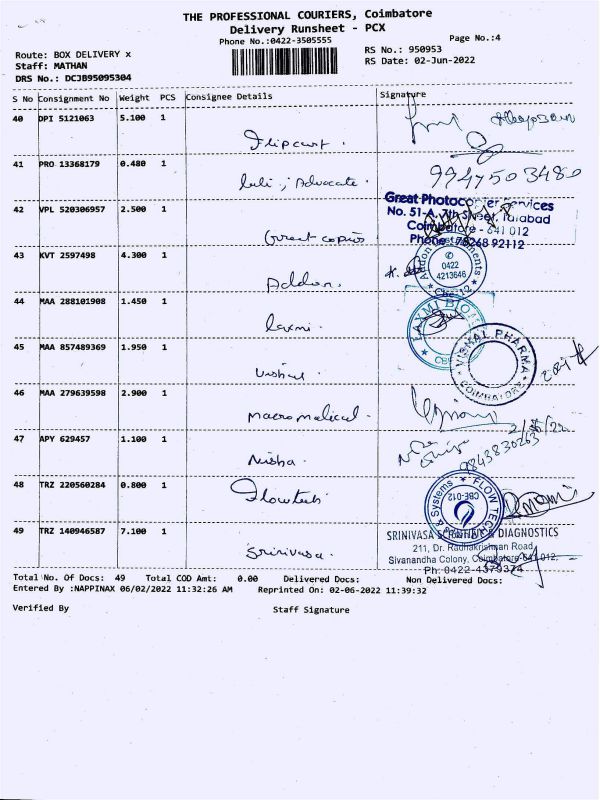 THE PROFESSIONAL COURIERS, Coimbatore
Delivery Runsheet - PCX
Phone No.:0422-3505555
Page No.:4
Route: BOX DELIVERY x
RS No.: 950953
Staff: MATHAN
RS Date: 02-Jun-2022
DRS No.: DCJB95095304
S No Consignment No Weight PCS Consignee Details Signature
40 DPI 5121063 5.100 1
Flipcart.
41 PRO 13368179 0.480 1
9947503480
luli, Advocate.
Great Photocopier Services
42 VPL 520306957 2.500 1
No. 51-A, 7th Street, Tatabad
Coimbatore - 641 012
Great copies
Phone : 78268 92112
43 KVT 2597498 4.300 1
0422
4213646
Cbe-12
Addon.
44 MAA 288101908 1.450 1
LAXMI
laxmi.
45 MAA 857489369 1.950 1
VISHAL PHARMA
COIMBATORE
vishal
46 MAA 279639598 2.900 1
macro medical.
47 APY 629457 1.100 1
9843830263
Nisha.
48 TRZ 220560284 0.800 1
FLOW TECH & Systems
CBE-012
Flowtech
49 TRZ 140946587 7.100 1
SRINIVASA SCIENTIFIC & DIAGNOSTICS
211, Dr. Radhakrishnan Road,
Srinivasa.
Sivanandha Colony, Coimbatore-641 012.
Ph: 0422-4379374
Total No. Of Docs: 49 Total COD Amt: 0.00 Delivered Docs: Non Delivered Docs:
Entered By :NAPPINAX 06/02/2022 11:32:26 AM Reprinted On: 02-06-2022 11:39:32
Verified By Staff Signature